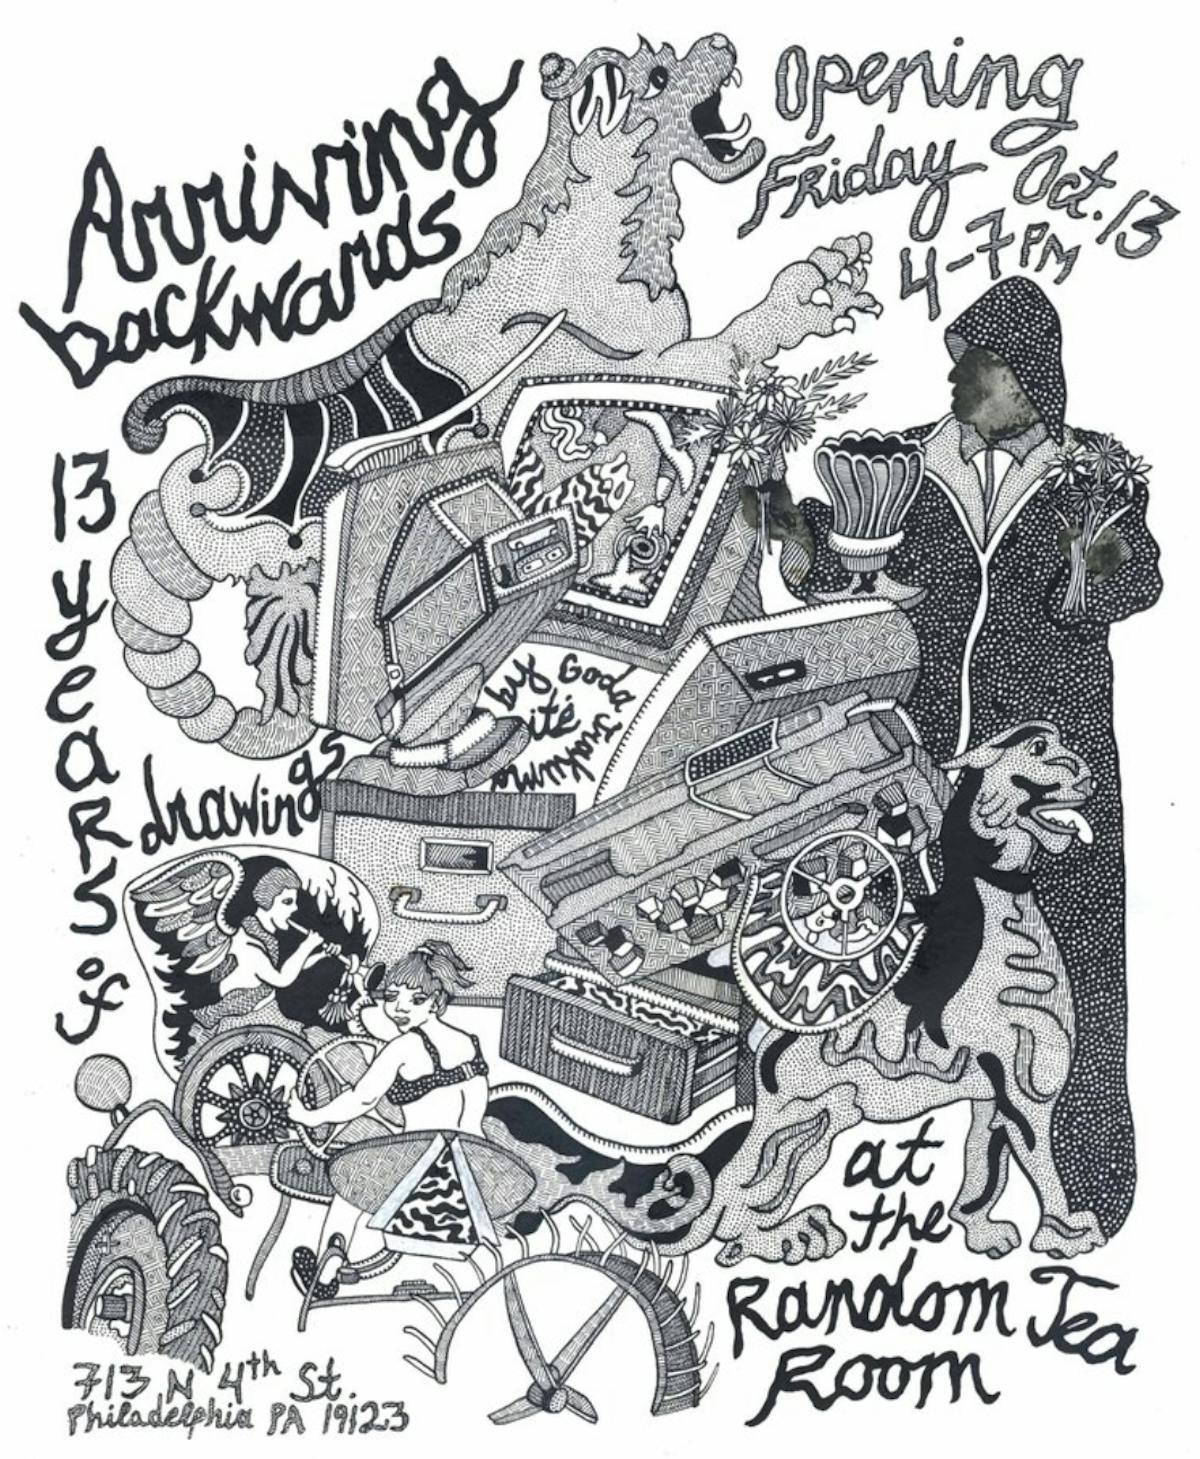 Arriving
backwards
Opening
Friday Oct. 13
4-7 PM
13 years of
drawings
by Goda
Trakumaitė
at
the
Random Tea
Room
713 N 4th St.
Philadelphia PA 19123